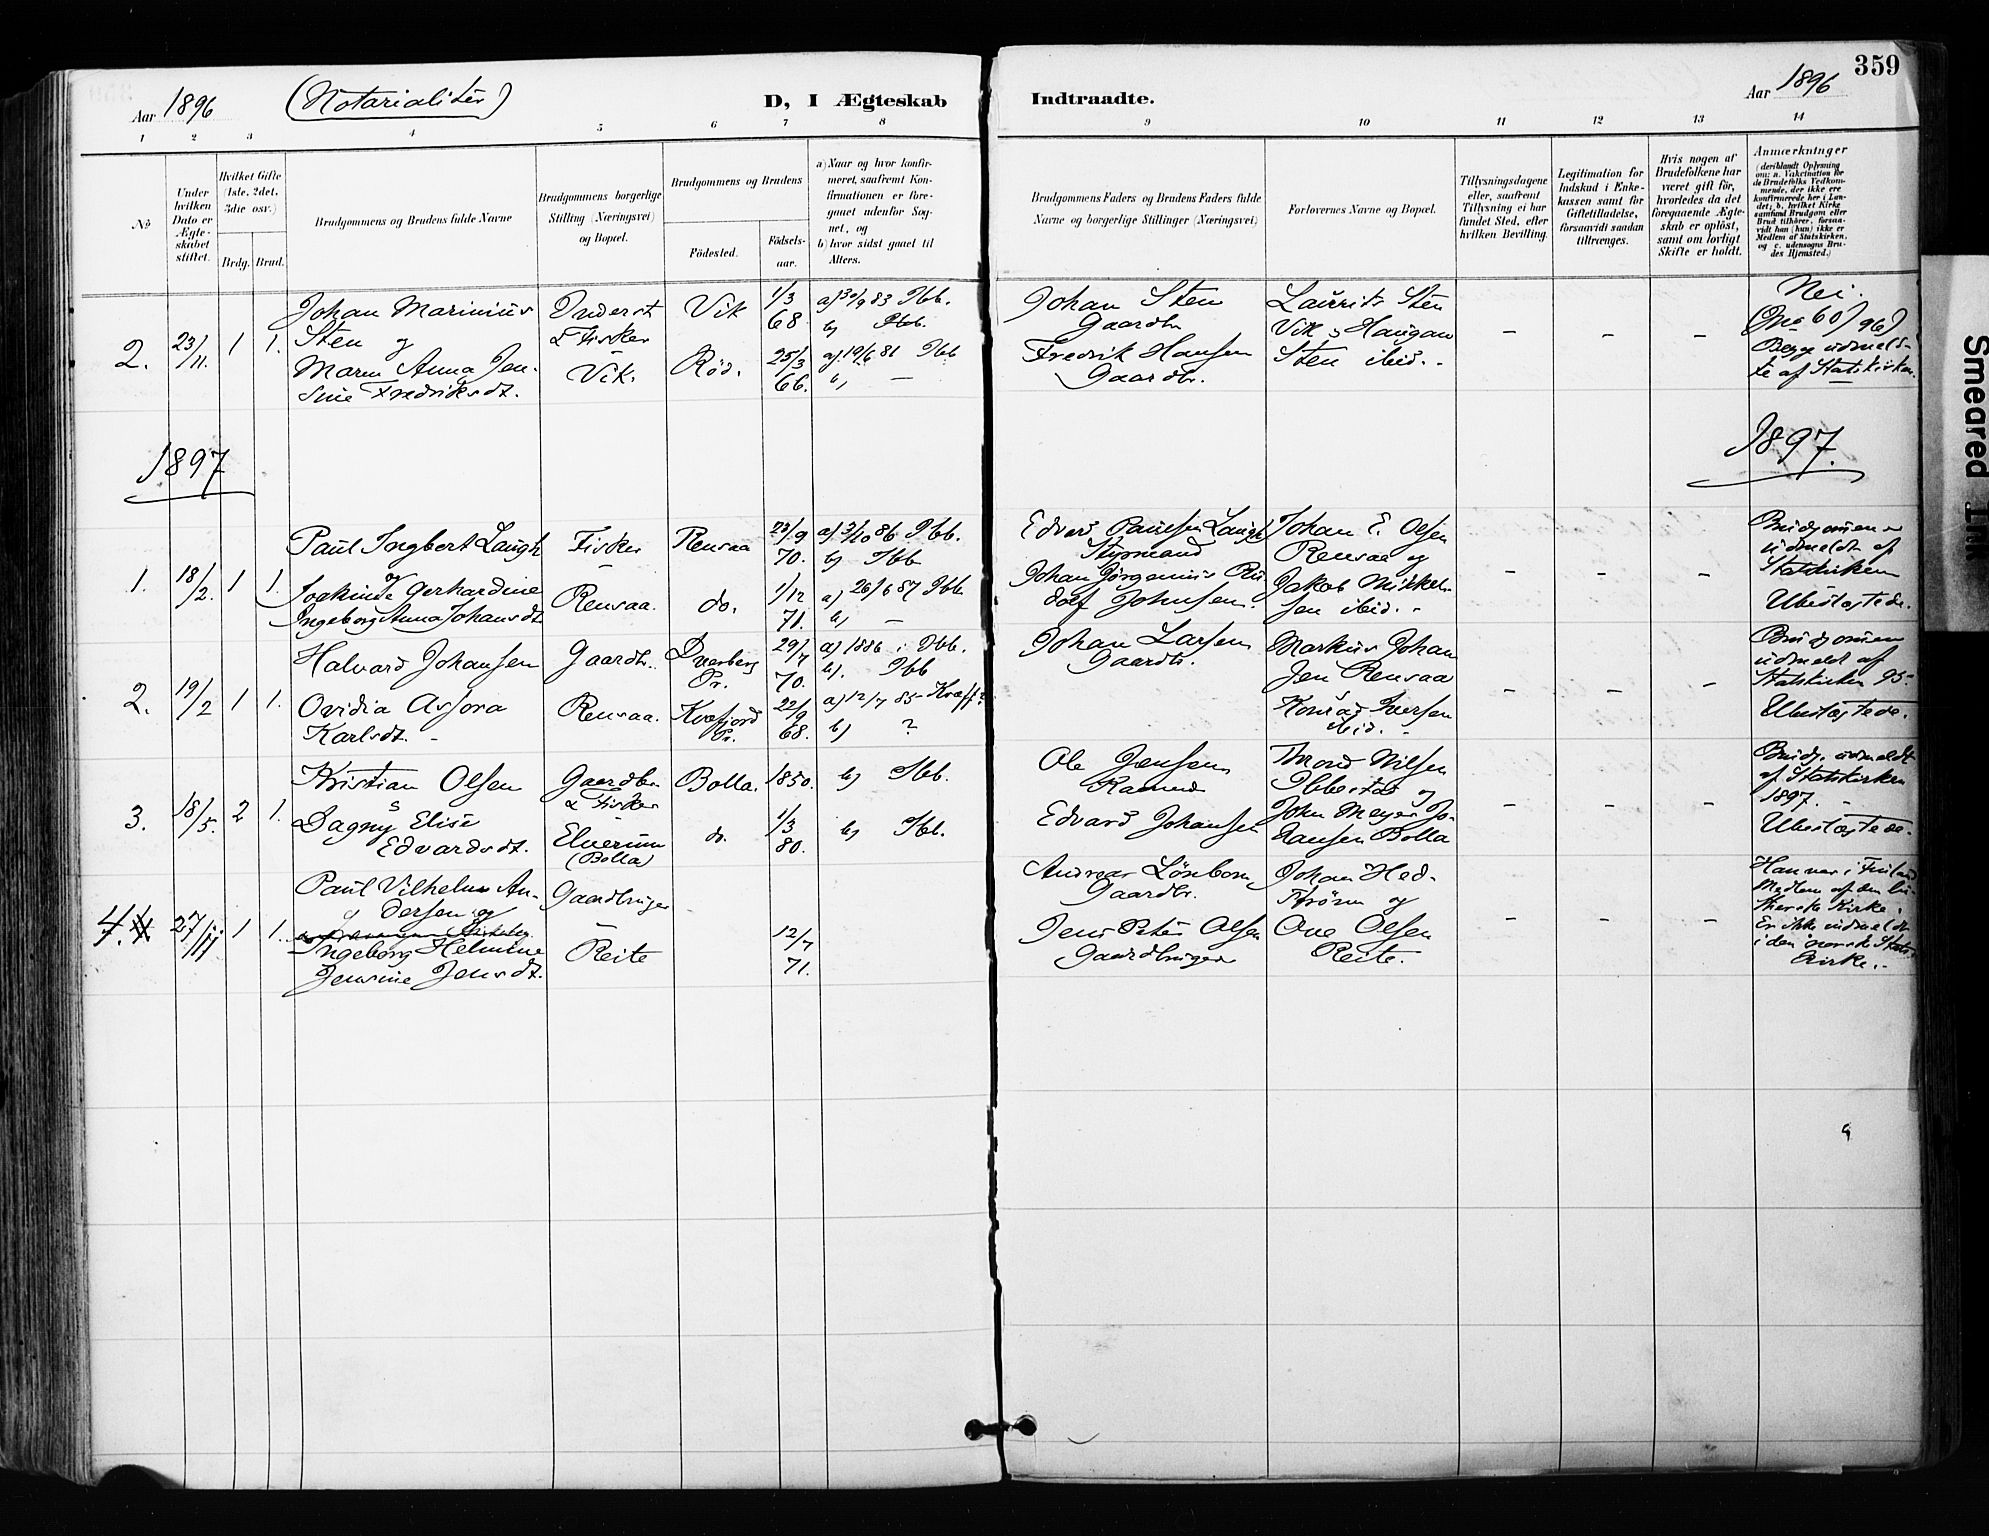 359
Aar 1896
(Notarialiter)
D, I Ægteskab
Indtraadte.
Aar 1896
1 2 3 4 5 6 7 8 9 10 11 12 13 14
No
Under
hvilken
Dato er
Ægte-
skabet
stiftet.
Hvilket Gifte
(1ste, 2det,
3die osv.)
Brdg. Brud.
Brudgommens og Brudens fulde Navne
Brudgommens borgerlige
Stilling (Næringsvei)
og Bopæl.
Brudgommens og Brudens
Födested.
Födsels-
aar.
a) Naar og hvor konfir-
meret, saafremt Kon-
firmationen er fore-
gaaet udenfor Sog-
net, og
b) hvor sidst gaaet til
Alters.
Brudgommens Faders og Brudens Faders fulde
Navne og borgerlige Stillinger (Næringsvei)
Forlovernes Navne og Bopæl.
Tillysningsdagene
eller, saafremt
Tillysning ei har
fundet Sted, efter
hvilken Bevilling.
Legitimation for
Indskud i Enke-
kassen samt for
Giftetilladelse,
forsaavidt saadan
tiltrænges.
Hvis nogen af
Brudefolkene har
været gift för,
hvorledes da det
foregaaende Ægte-
skab er oplöst,
samt om lovligt
Skifte er holdt.
Anmærkninger
(deriblandt Oplysning
om: a. Vakcination for
de Brudefolks Vedkom-
mende, der ikke ere
konfirmerede her i Lan-
det; b. hvilket Kirke
samfund Brudgom eller
Brud tilhörer, forsaa-
vidt han (hun) ikke er
Medlem af Statskirken,
og c. udensogns Bru-
des Hjemsted.)
2. 23/11. 1 1.
Johan Marinius
Sten og
Maren Anna Jen-
sine Fredriksdt.
Inderst
& Fisker
Vik.
Vik
Rød.
1/3
68
25/3
66.
a) 30/9 83 Ibb.
b) Ibb.
a) 19/6 81 Ibb
b) —
Johan Sten
Gaardbr
Fredrik Hansen
Gaardbr.
Laurits Sten
Vik & Haugan
Sten ibid.
– – –
Nei.
(No 60/96)
Begge udmeld-
te af Statskirken.
1897
1897.
1. 18/2. 1 1.
Paul Ingbert Laugh
og
Gerhardine
Ingeborg Anna Johansdt
Fisker
Rensaa.
Rensaa
do.
23/9
70.
1/12
71.
a) 3/10 86 Ibb.
b) Ibb
a) 26/6 87 Ibb.
b) —
Edvard Paulsen Laugh
Styrmand
Johan Jörgenius Ru-
dolf Johnsen.
Johan E. Olsen
Rensaa og
Jakob Mikkel-
sen ibid.
– – –
Brudgommen
udmeldt af
Statskirken
Ubeslægtede.
2. 19/2 1 1.
Halvard Johansen
Ovidia Assora
Karlsdt.
Gaardbr.
Rensaa.
Dverberg
Pr.
Kvæfjord
Pr.
29/7
70.
22/9
68.
a) 1886 i Ibb.
b). Ibb
a) 12/7 85 Kvæfj?
b) ?
Johan Larsen
Gaardbr.
Markus Johan
Jen Rensaa
Konrad Iversen
ibid.
– – –
Brudgommen
udmeldt af
Statskirken 95.
Ubeslægtede.
3. 18/5. 2 1.
Kristian Olsen
&
Dagny Elise
Edvardsdt.
Gaardbr
& Fisker
Elverum
(Bolla)
Bolla.
do.
1850.
1/3
80.
b) Ibb.
b) Ibb.
Ole Jensen
Edvard Johansen
Thrond Nilsen
Ibbestad og
John Meyer Jo-
hansen Bolla
– – –
Brudg. udmeldt
af Statskirken
1897.
Ubeslægtede.
4. 27/11 1 1.
Paul Vilhelm An-
dersen og
Ingeborg Helmine
Jensine Jensdt.
Gaardbruger
Reite
12/7
71.
Andreas Lönbom
Gaardbr.
Jens Peter Olsen
Gaardbruger
Johan Hed-
ström og
Ove Olsen
Reite.
– – –
Han var i Finland
Medlem af den lu-
therske Kirke.
Er ikke indmeldt
i den norske Stats-
kirke.
Smeared Ink